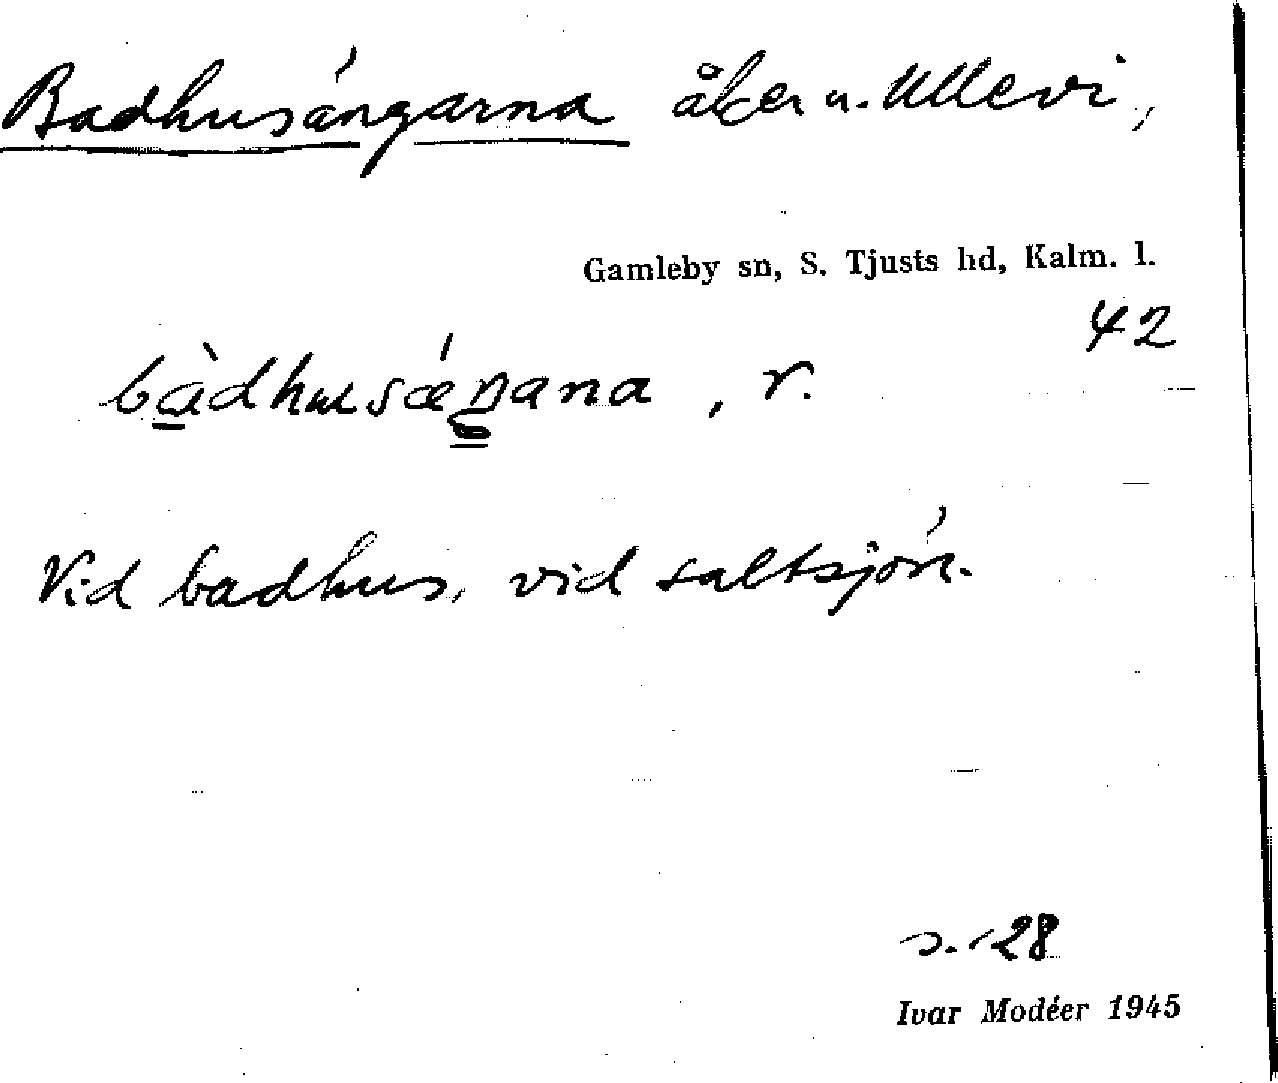 Badhusängarna åker u. Ullevi,
Gamleby sn, S. Tjusts hd, Kalm. l.
42
bàdhusǽŋana, r.
Vid badhus, vid saltsjön.
s. 128
Ivar Modéer 1945